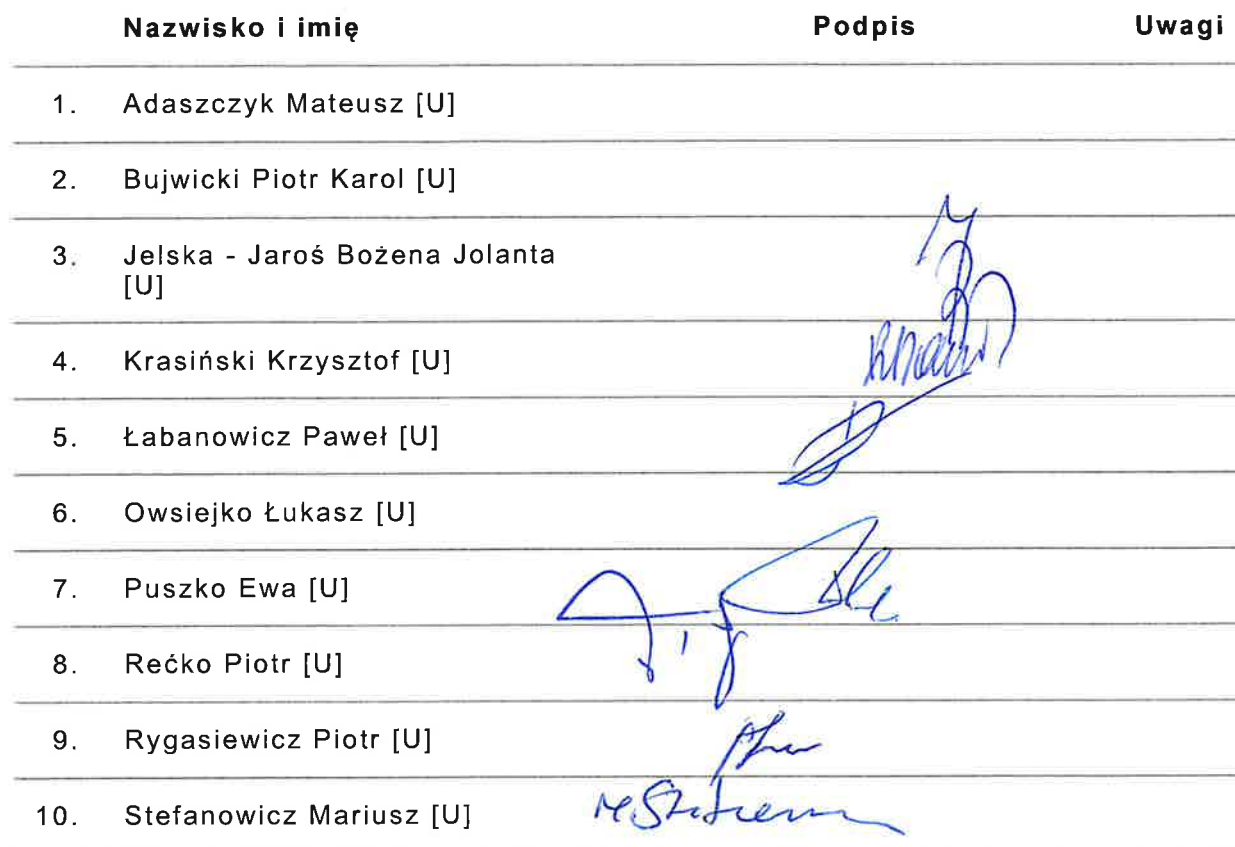 Nazwisko i imię Podpis Uwagi
1. Adaszczyk Mateusz [U]
2. Bujwicki Piotr Karol [U]
3. Jelska - Jaroś Bożena Jolanta
[U]
4. Krasiński Krzysztof [U]
5. Łabanowicz Paweł [U]
6. Owsiejko Łukasz [U]
7. Puszko Ewa [U]
8. Rećko Piotr [U]
9. Rygasiewicz Piotr [U]
10. Stefanowicz Mariusz [U]